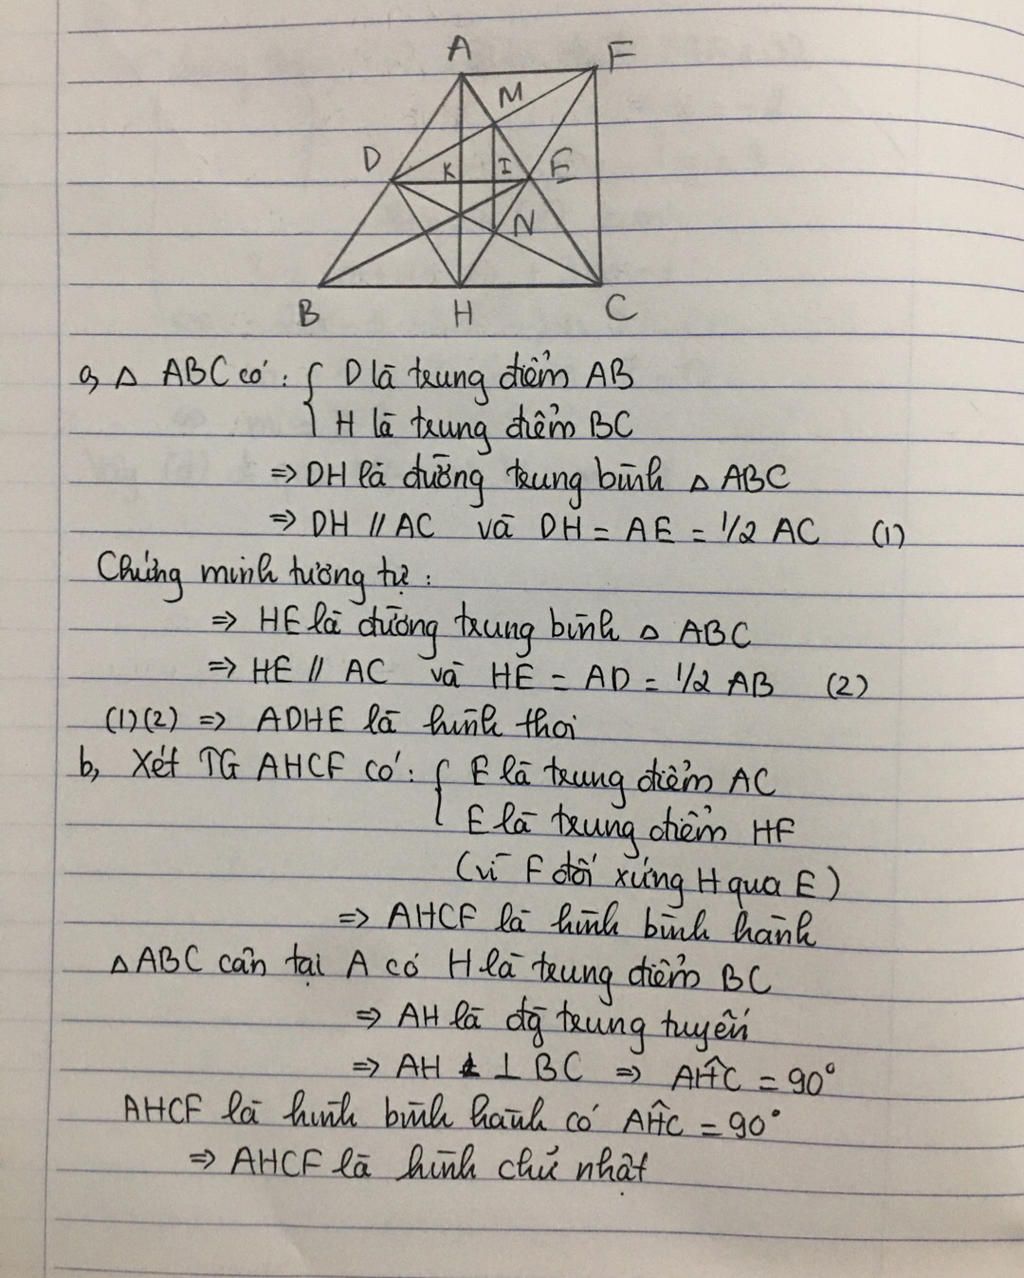 A F
M
D K I E
N
B H C
a, △ ABC có: { D là trung điểm AB
H là trung điểm BC
=> DH là đường trung bình △ ABC
=> DH // AC và DH = AE = 1/2 AC (1)
Chứng minh tương tự:
=> HE là đường trung bình △ ABC
=> HE // AC và HE = AD = 1/2 AB (2)
(1)(2) => ADHE là hình thoi
b, Xét TG AHCF có: { E là trung điểm AC
E là trung điểm HF
(vì F đối xứng H qua E)
=> AHCF là hình bình hành
△ ABC cân tại A có H là trung điểm BC
=> AH là đg trung tuyến
=> AH ⊥ BC => AĤC = 90°
AHCF là hình bình hành có AĤC = 90°
=> AHCF là hình chữ nhật